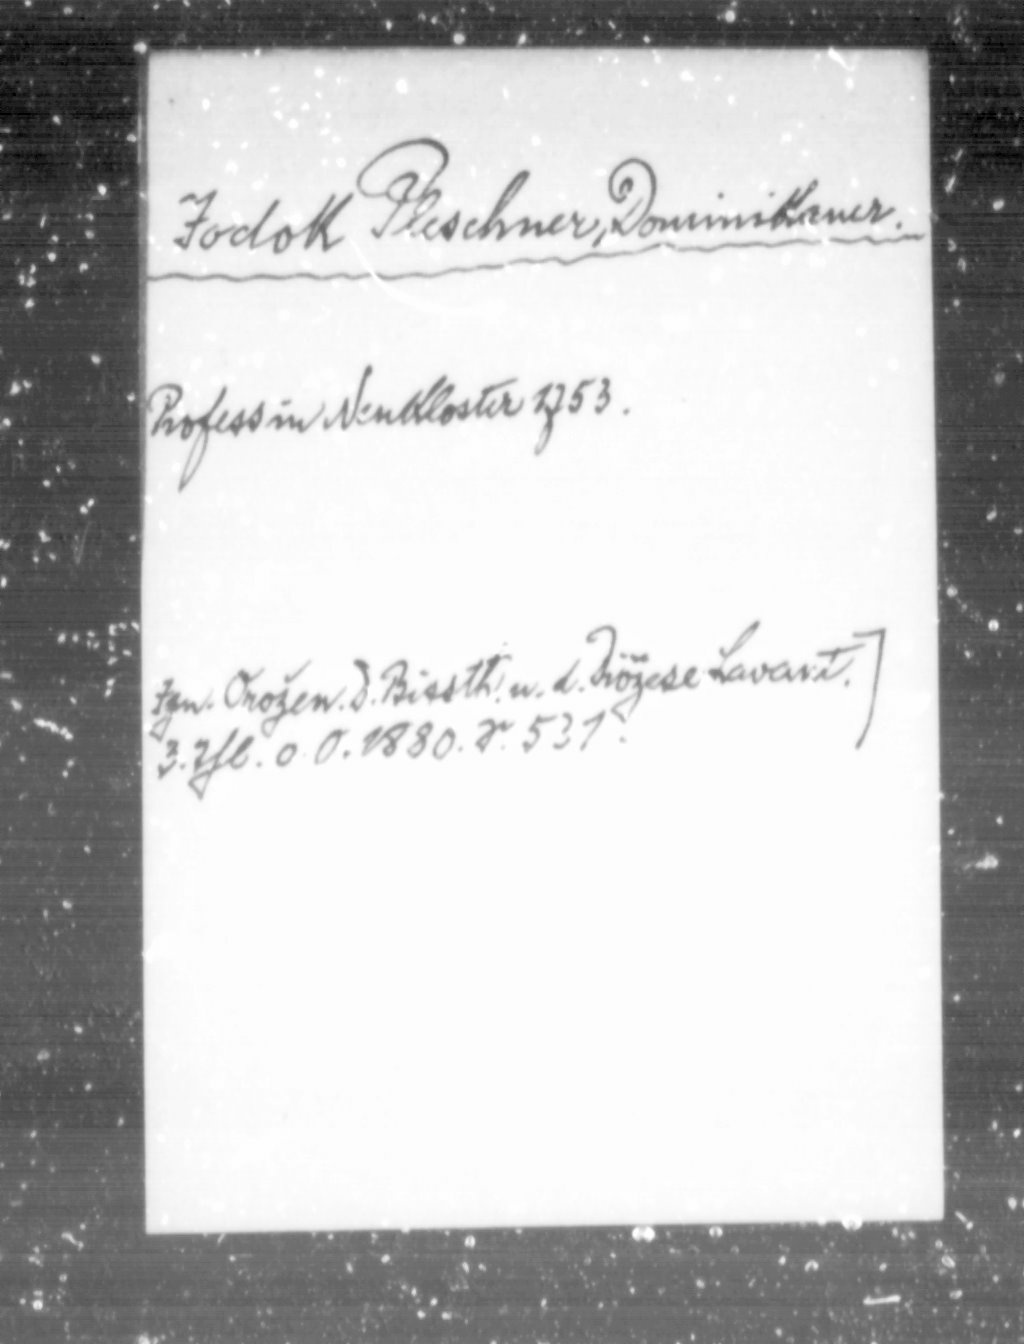 Jodok Pleschner, Dominikaner.
Profess in Neukloster 1753.
Ign. Orožen. D. Bissth. u. d. Diözese Lavant.
3. Thl. o. O. 1880. S. 531.